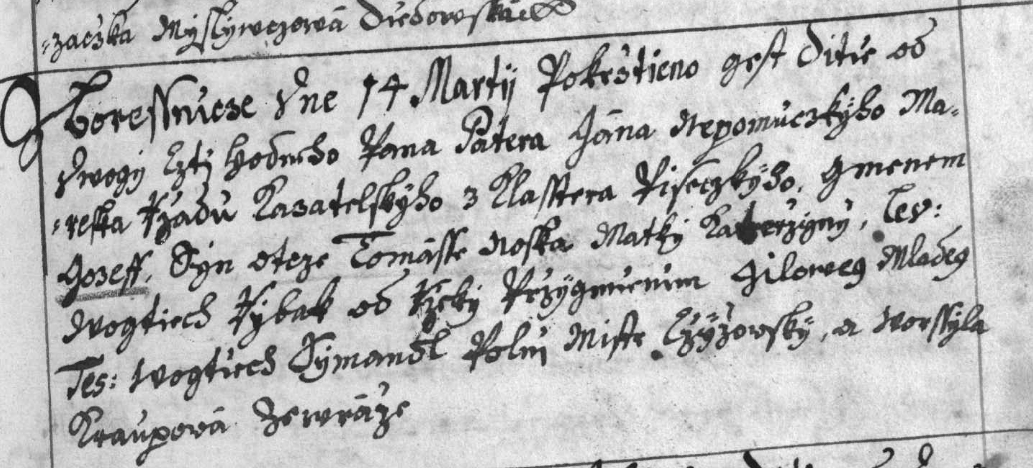 -zaczka Myslywczowa Diedowska
Boressnicze Dne 14 Martij Pokrztieno gest Ditie od
Dwogi Czti hodneho Pana Patera Jana Nepomuczkyho Ma-
-reska Rzadu Kazatelskyho z Klasstera Pisseczkyho. Gmenem
Jozeff, Syn otcze Tomasse Noska Matky Katerzyny, Lev:
Wogtiech Rybak od Rzeky Przygmenim Giloweg Mladeg
Tes: Wogtiech Symandl Polni Mistr Czyzowsky, a Worssyla
Kraupowa Zewraze